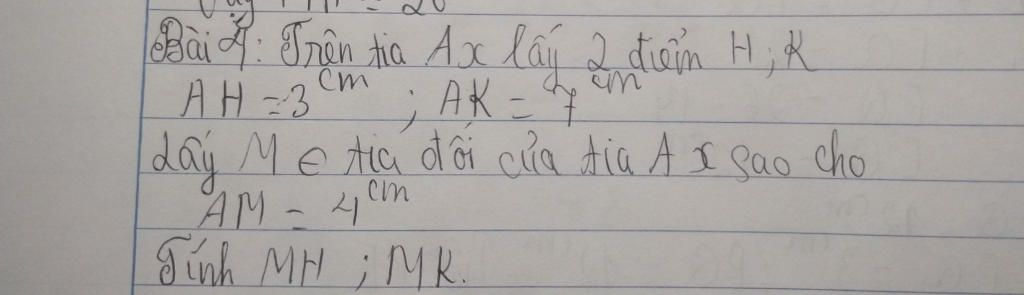 Bài 4: Trên tia Ax lấy 2 điểm H; K
AH = 3cm ; AK = 7cm
Lấy M ∈ tia đối của tia Ax sao cho
AM = 4cm
Tính MH ; MK.